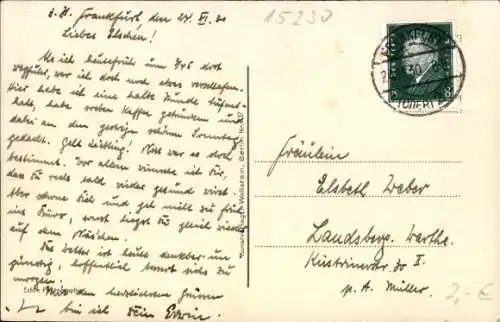 z. Zt. Frankfurt den 24. VI. 30
Liebes Elschen!
Als ich heute früh um 7 45 dort
wegfuhr, war ich doch noch etwas verschlafen.
Hier habe ich eine halbe Stunde Aufent-
halt, habe soeben Kaffee getrunken und
dabei an den gestrigen schönen Sonntag
gedacht. Gelt Liebling! Nett war es doch
bestimmt. Vor allem wünsche ich Dir,
daß Du recht bald wieder gesund wirst.
Also schone Dich und geh nicht zu früh
ins Büro, sonst liegst Du gleich wieder
auf dem Näschen.
Das Wetter ist heute denkbar un-
günstig, hoffentlich bessert sichs zu
morgen!
Mit den herzlichsten Grüßen
bin ich Dein Erwin.
15230
Fräulein
Elsbeth Weber
Landsberg. Warthe.
Küstrinerstr. 30 II.
p. A. Müller.
2,- €
Verlag Wollstein, Berlin